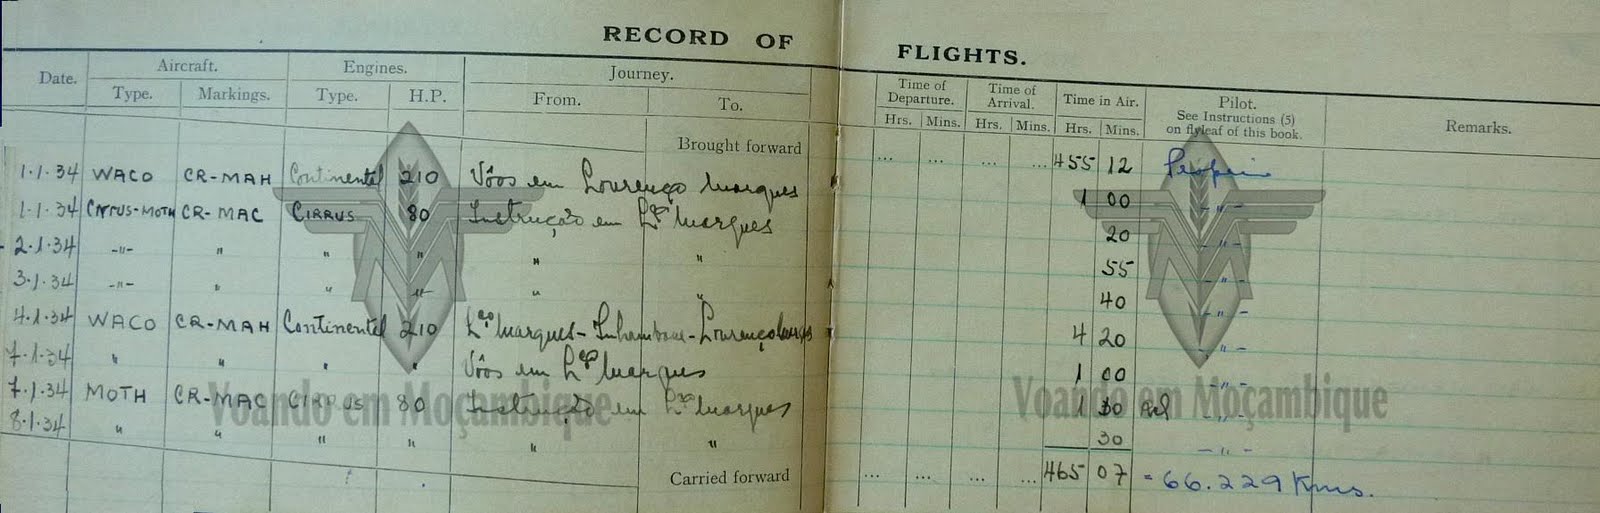 RECORD OF FLIGHTS.
Date. Aircraft. Engines. Journey. Time of Departure. Time of Arrival. Time in Air. Pilot. See Instructions (5) on flyleaf of this book. Remarks.
Type. Markings. Type. H.P. From. To. Hrs. Mins. Hrs. Mins. Hrs. Mins.
Brought forward ... ... ... ... 455 12
1.1.34 WACO CR-MAH Continental 210 Vôos em Lourenço Marques 1 00 -"-
1.1.34 CIRRUS-MOTH CR-MAC CIRRUS 80 Instrução em Lço Marques 20 -"-
2.1.34 -"- " " " " " 55 -"-
3.1.34 -"- " " -"- " " 40 -"-
4.1.34 WACO CR-MAH Continental 210 Lço Marques-Inhambane-Lourenço Marques 4 20 -"-
7.1.34 " " " " Vôos em Lço Marques 1 00 -"-
7.1.34 MOTH CR-MAC CIRRUS 80 Instrução em Lço Marques 1 10 -"-
8.1.34 " " " " " " 30 -"-
Carried forward ... ... ... ... 465 07 = 66.229 Kms.
Voando em Moçambique
Voando em Moçambique